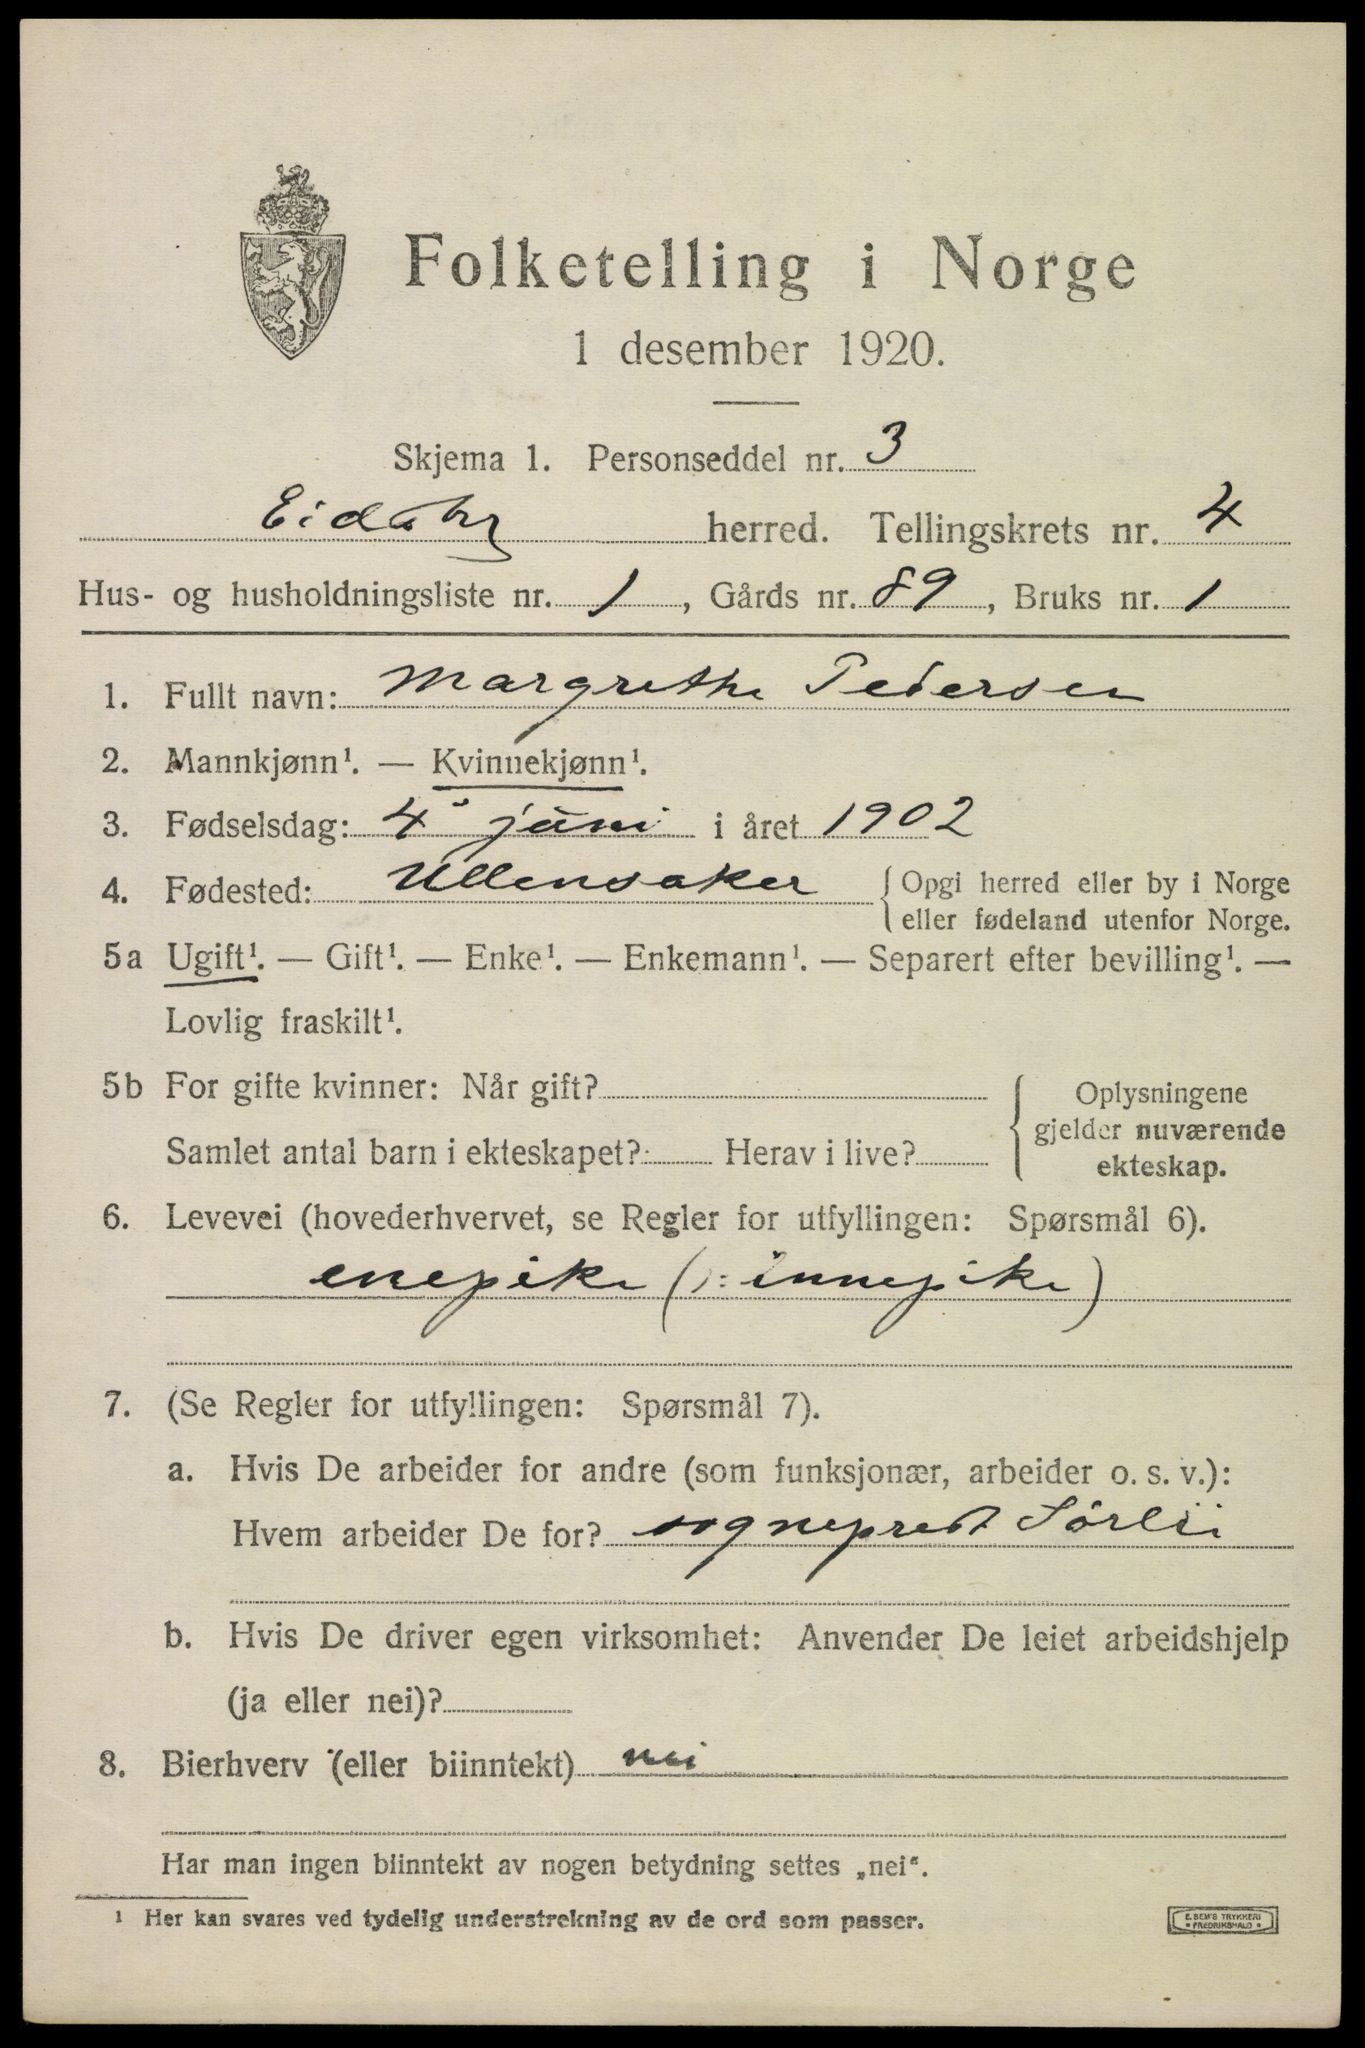 Folketelling i Norge
1 desember 1920.
Skjema 1. Personseddel nr. 3
Eidsberg herred. Tellingskrets nr. 4
Hus- og husholdningsliste nr. 1, Gårds nr. 89, Bruks nr. 1
1. Fullt navn: Margrethe Pedersen
2. Mannkjønn¹. — Kvinnekjønn¹.
3. Fødselsdag: 4 juni i året 1902
4. Fødested: Ullensaker { Opgi herred eller by i Norge
eller fødeland utenfor Norge.
5a Ugift¹. — Gift¹. — Enke¹. — Enkemann¹. — Separert efter bevilling¹. —
Lovlig fraskilt¹.
5b For gifte kvinner: Når gift?
Samlet antal barn i ekteskapet? Herav i live?
{ Oplysningene
gjelder nuværende
ekteskap.
6. Levevei (hovederhvervet, se Regler for utfyllingen: Spørsmål 6).
enepike (: innepike)
7. (Se Regler for utfyllingen: Spørsmål 7).
a. Hvis De arbeider for andre (som funksjonær, arbeider o. s. v.):
Hvem arbeider De for? sogneprest Sörlii
b. Hvis De driver egen virksomhet: Anvender De leiet arbeidshjelp
(ja eller nei)?
8. Bierhverv (eller biinntekt) nei
Har man ingen biinntekt av nogen betydning settes „nei“.
¹ Her kan svares ved tydelig understrekning av de ord som passer.
E. SEM'S TRYKKERI
FREDRIKSHALD